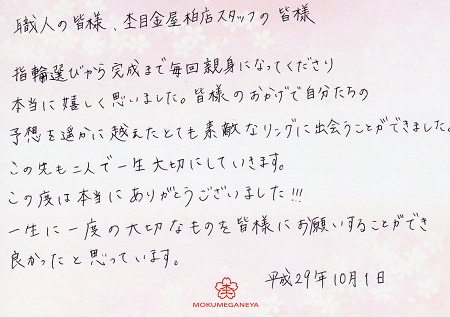 職人の皆様、杢目金屋柏店スタッフの皆様
指輪選びから完成まで毎回親身になってくださり
本当に嬉しく思いました。皆様のおかげで自分たちの
予想を遥かに越えたとても素敵なリングに出会うことができました。
この先も二人で一生大切にしていきます。
この度は本当にありがとうございました!!!
一生に一度の大切なものを皆様にお願いすることができ
良かったと思っています。
平成29年10月1日
杢
MOKUMEGANEYA